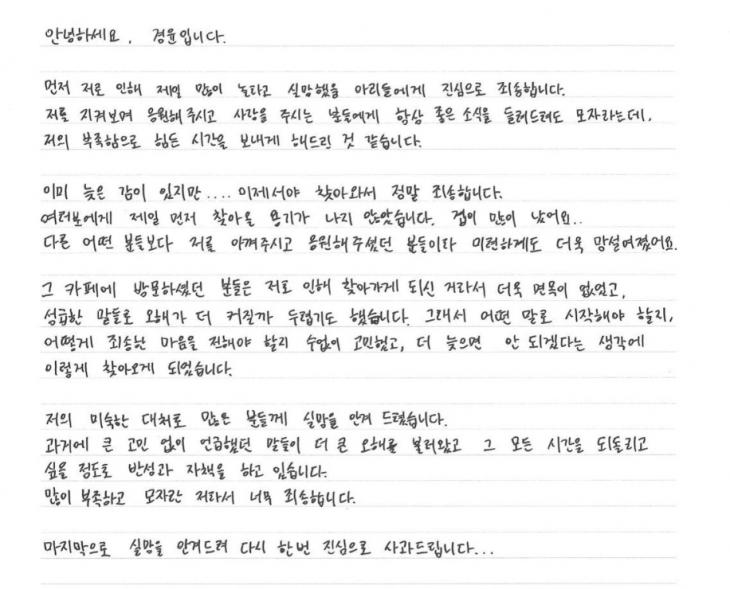 안녕하세요, 경윤입니다.
먼저 저로 인해 제일 많이 놀라고 실망했을 아리들에게 진심으로 죄송합니다.
저를 지켜보며 응원해주시고 사랑을 주시는 분들에게 항상 좋은 소식을 들려드려도 모자라는데,
저의 부족함으로 힘든 시간을 보내게 해드린 것 같습니다.
이미 늦은 감이 있지만.... 이제서야 찾아와서 정말 죄송합니다.
여러분에게 제일 먼저 찾아올 용기가 나지 않았습니다. 겁이 많이 났어요..
다른 어떤 분들보다 저를 아껴주시고 응원해주셨던 분들이라 미련하게도 더욱 망설여졌어요.
그 카페에 방문하셨던 분들은 저로 인해 찾아가게 되신 거라서 더욱 면목이 없었고,
성급한 말들로 오해가 더 커질까 두렵기도 했습니다. 그래서 어떤 말로 시작해야 할지,
어떻게 죄송한 마음을 전해야 할지 수없이 고민했고, 더 늦으면 안 되겠다는 생각에
이렇게 찾아오게 되었습니다.
저의 미숙한 대처로 많은 분들께 실망을 안겨 드렸습니다.
과거에 큰 고민 없이 언급했던 말들이 더 큰 오해를 불러왔고 그 모든 시간을 되돌리고
싶을 정도로 반성과 자책을 하고 있습니다.
많이 부족하고 모자란 저라서 너무 죄송합니다.
마지막으로 실망을 안겨드려 다시 한번 진심으로 사과드립니다...